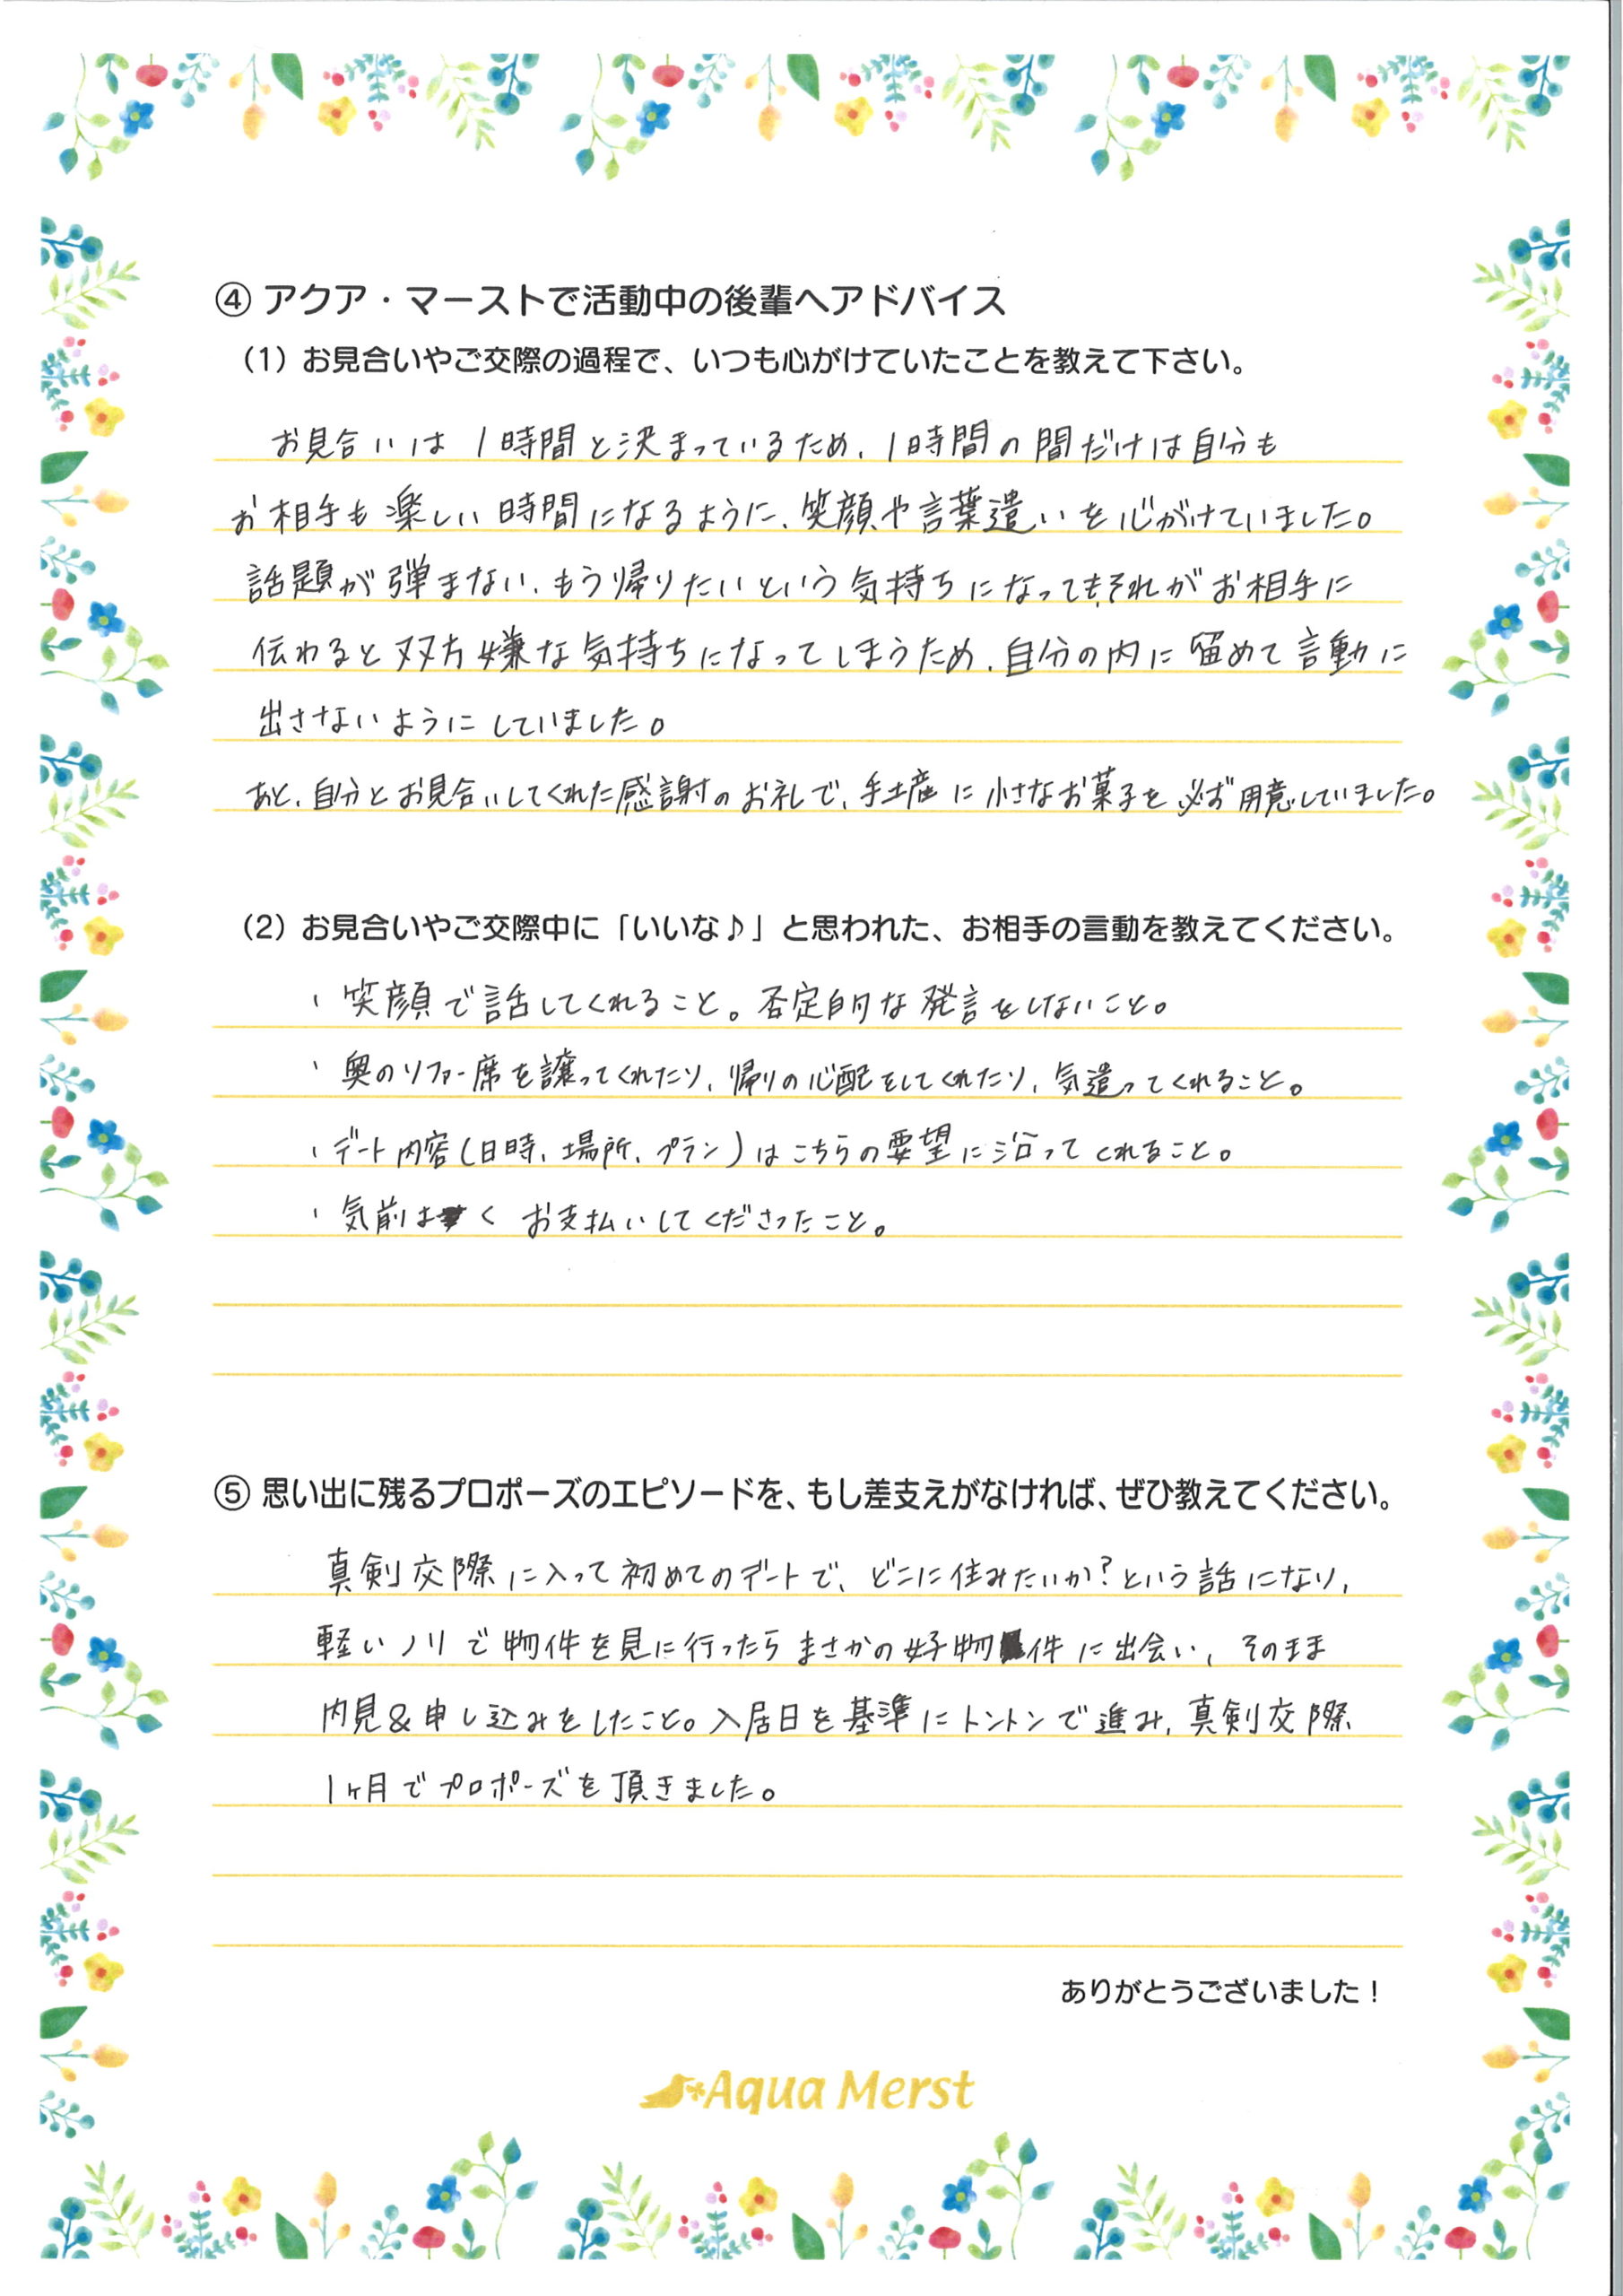 ④ アクア・マーストで活動中の後輩へアドバイス
（1）お見合いやご交際の過程で、いつも心がけていたことを教えて下さい。
お見合いは1時間と決まっているため、1時間の間だけは自分も
お相手も楽しい時間になるように、笑顔や言葉遣いを心がけていました。
話題が弾まない、もう帰りたいという気持ちになってもそれがお相手に
伝わると双方嫌な気持ちになってしまうため、自分の内に留めて言動に
出さないようにしていました。
あと、自分とお見合いしてくれた感謝のお礼で、手土産に小さなお菓子を必ず用意していました。
（2）お見合いやご交際中に「いいな♪」と思われた、お相手の言動を教えてください。
・笑顔で話してくれること。否定的な発言をしないこと。
・奥のソファー席を譲ってくれたり、帰りの心配をしてくれたり、気遣ってくれること。
・デート内容（日時、場所、プラン）はこちらの要望に沿ってくれること。
・気前よく お支払いしてくださったこと。
⑤ 思い出に残るプロポーズのエピソードを、もし差支えがなければ、ぜひ教えてください。
真剣交際に入って初めてのデートで、どこに住みたいか？という話になり、
軽いノリで物件を見に行ったらまさかの好物件に出会い、そのまま
内見＆申し込みをしたこと。入居日を基準にトントンで進み、真剣交際
1ヶ月でプロポーズを頂きました。
ありがとうございました！
Aqua Merst